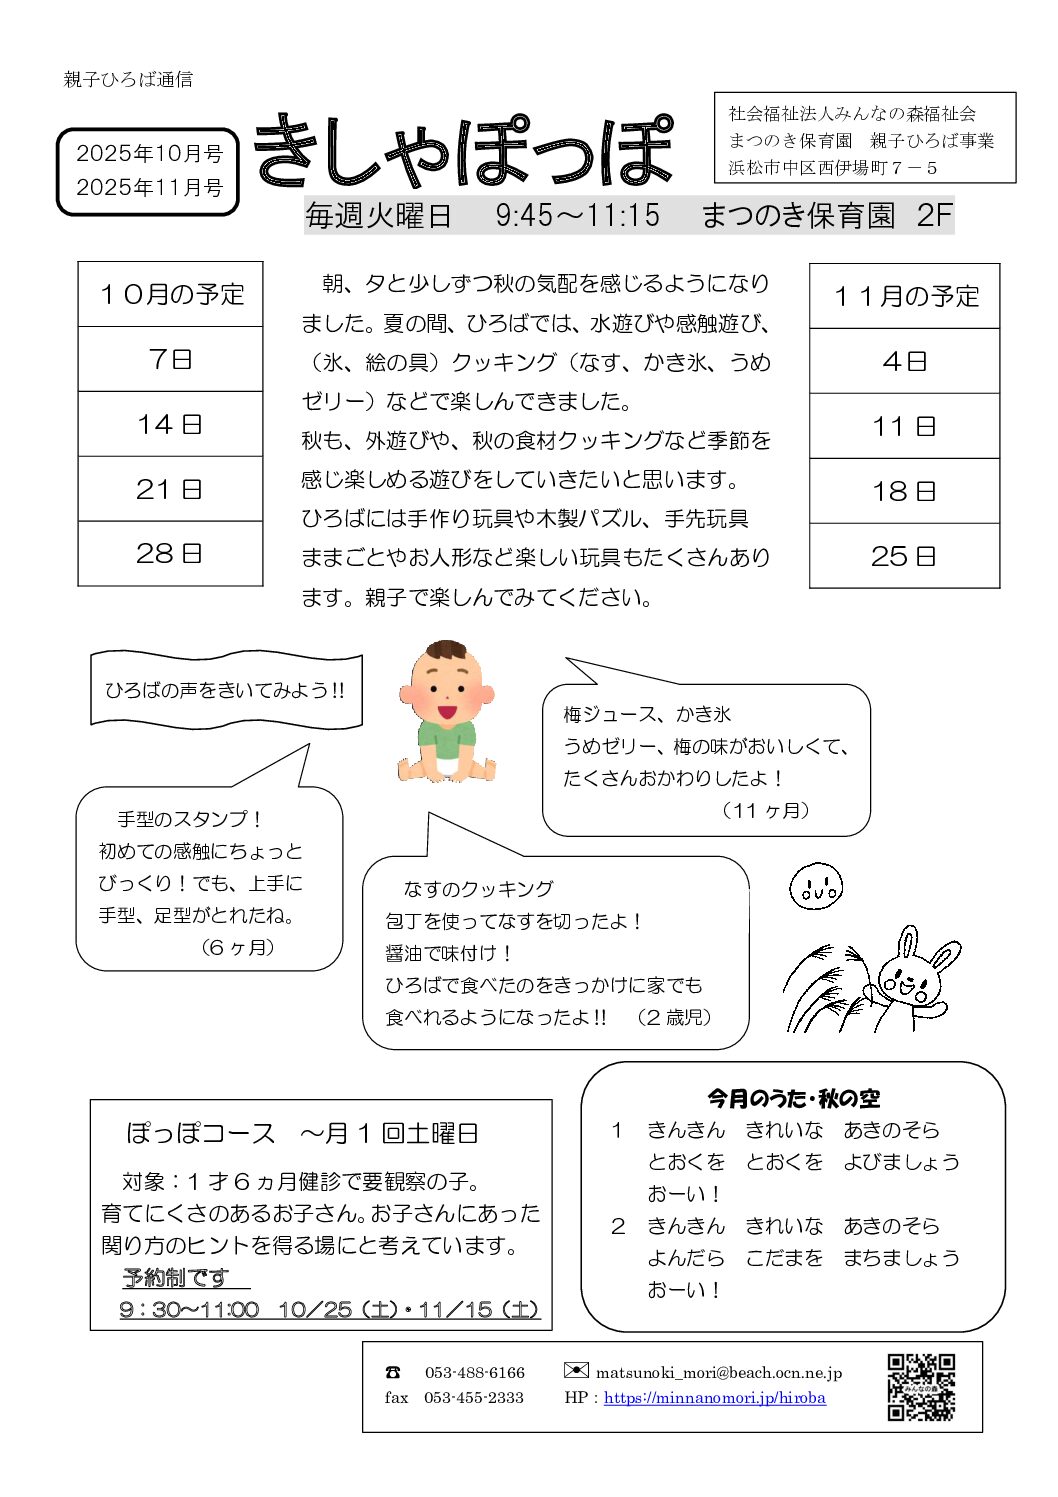 親子ひろば通信
2025年10月号
2025年11月号
きしゃぽっぽ
社会福祉法人みんなの森福祉会
まつのき保育園　親子ひろば事業
浜松市中区西伊場町７－５
毎週火曜日　9:45～11:15　まつのき保育園　2F
１０月の予定
7日
14日
21日
28日
　朝、夕と少しずつ秋の気配を感じるようになり
ました。夏の間、ひろばでは、水遊びや感触遊び、
（氷、絵の具）クッキング（なす、かき氷、うめ
ゼリー）などで楽しんできました。
秋も、外遊びや、秋の食材クッキングなど季節を
感じ楽しめる遊びをしていきたいと思います。
ひろばには手作り玩具や木製パズル、手先玩具
ままごとやお人形など楽しい玩具もたくさんあり
ます。親子で楽しんでみてください。
１１月の予定
4日
11日
18日
25日
ひろばの声をきいてみよう!!
梅ジュース、かき氷
うめゼリー、梅の味がおいしくて、
たくさんおかわりしたよ！
（11ヶ月）
　手型のスタンプ！
初めての感触にちょっと
びっくり！でも、上手に
手型、足型がとれたね。
（6ヶ月）
　なすのクッキング
包丁を使ってなすを切ったよ！
醤油で味付け！
ひろばで食べたのをきっかけに家でも
食べれるようになったよ!!　（2歳児）
ぽっぽコース　～月１回土曜日
　対象：１才６ヵ月健診で要観察の子。
育てにくさのあるお子さん。お子さんにあった
関り方のヒントを得る場にと考えています。
予約制です
9：30～11:00　10／25（土）・11／15（土）
今月のうた・秋の空
1　きんきん　きれいな　あきのそら
とおくを　とおくを　よびましょう
おーい！
2　きんきん　きれいな　あきのそら
よんだら　こだまを　まちましょう
おーい！
☎　053-488-6166　✉ matsunoki_mori@beach.ocn.ne.jp
fax　053-455-2333　HP：https://minnanomori.jp/hiroba
みんなの森